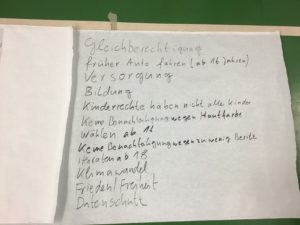 Gleichberechtigung
früher Auto fahren (ab 16 Jahren)
Versorgung
Bildung
Kinderrechte haben nicht alle Kinder
Keine Benachteiligung wegen Hautfarbe
Wählen ab 12
Keine Benachteiligung wegen zu wenig Besitz
heiraten ab 18
Klimawandel
Frieden/Freiheit
Datenschutz